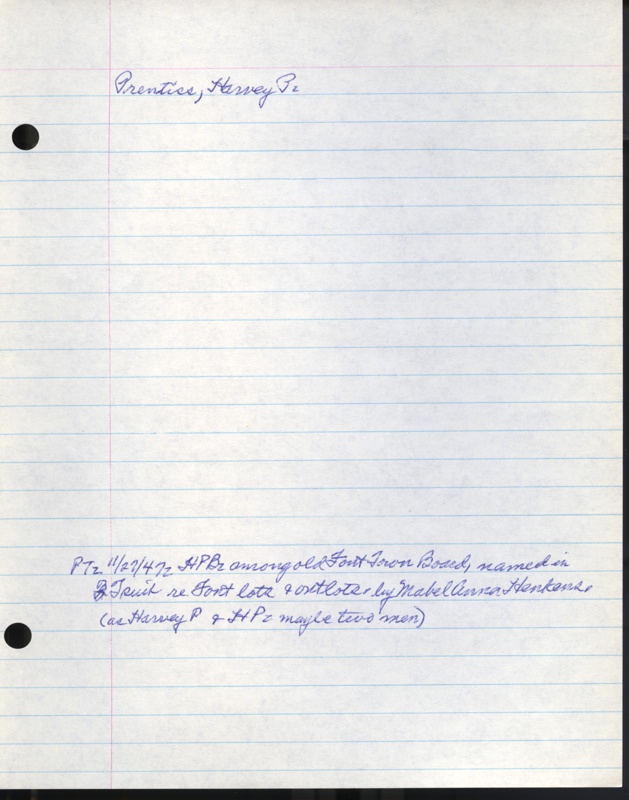 Prentiss, Harvey P.
PT. 11/27/47. HPP. among old Font Town Board, named in
QT suit re Font lots & outlots. by Mabel Anna Henkens.
(as Harvey P & H P. maybe two men)